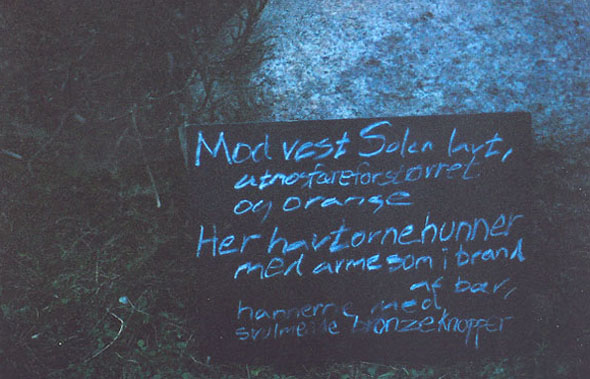 Mod vest Solen lavt,
atmosfæreforstørret
og orange
Her havtornehunner
med arme som i brand
af bær,
hannerne med
svulmende bronzeknopper